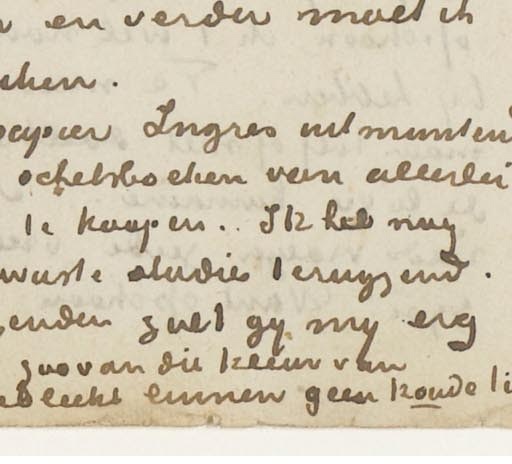 en verder moet ik
ken.
papier Ingres uitmuntend
schetsboeken van allerlei
te koopen. Ik heb nog
bewuste studies terugzend.
zenden zult gy my erg
zoo van die kleur van
gebleekt linnen geen koude